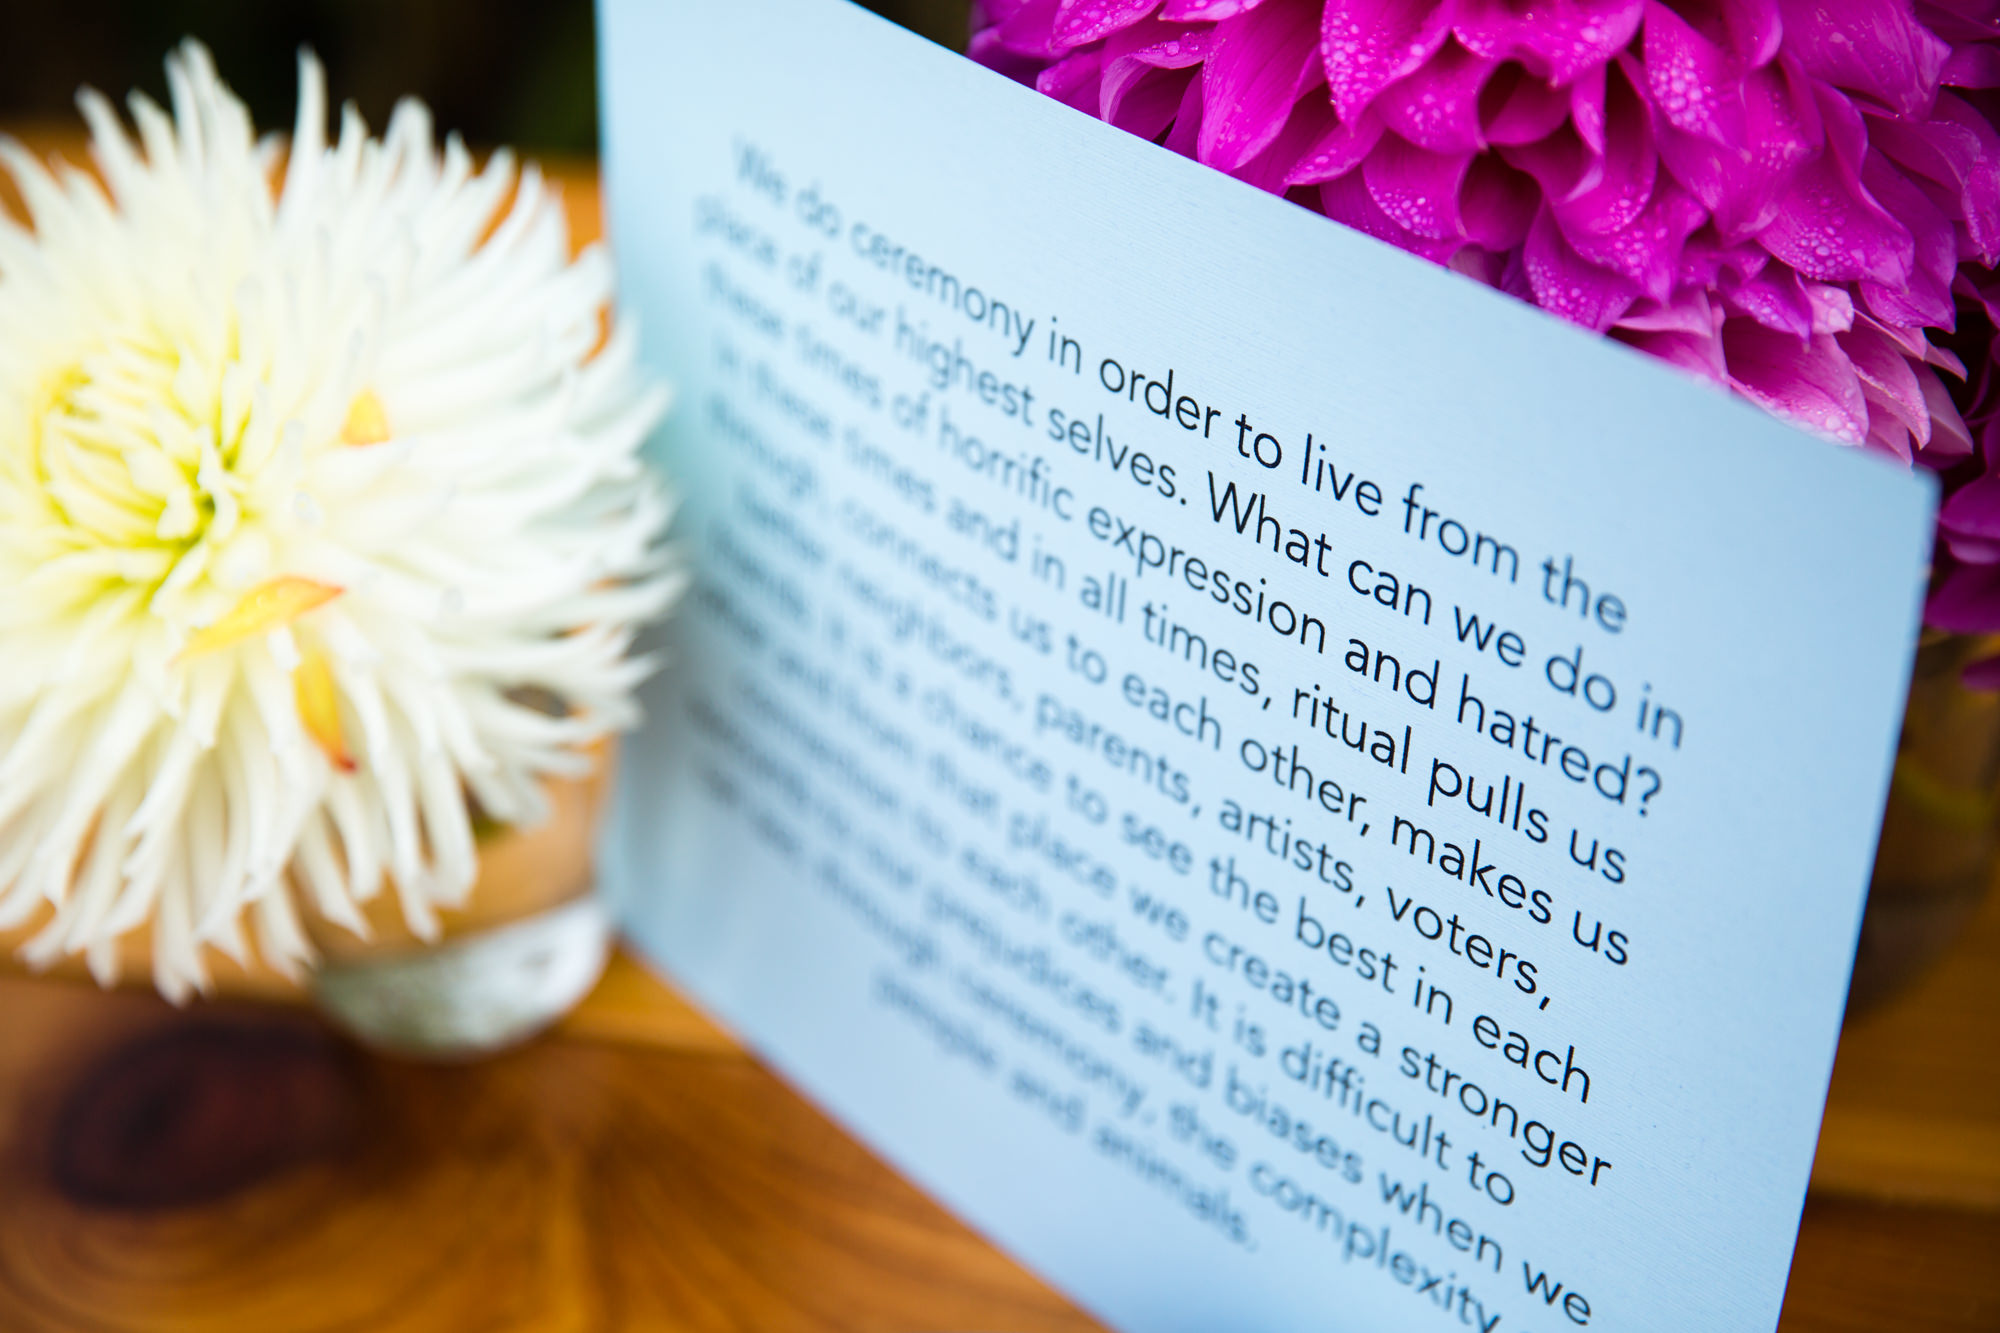 We do ceremony in order to live from the
place of our highest selves. What can we do in
these times of horrific expression and hatred?
In these times and in all times, ritual pulls us
through, connects us to each other, makes us
better neighbors, parents, artists, voters,
friends. It is a chance to see the best in each
other and from that place we create a stronger
connection to each other. It is difficult to
to our prejudices and biases when we
through ceremony, the complexity
people and animals.